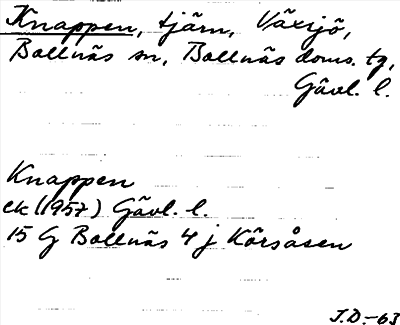 Knappen, tjärn, Växsjö,
Bollnäs sn, Bollnäs doms. tg,
Gävl. l.
Knappen
ek (1957) Gävl. l.
15 G Bollnäs 4 j Körsåsen
J.D.-63